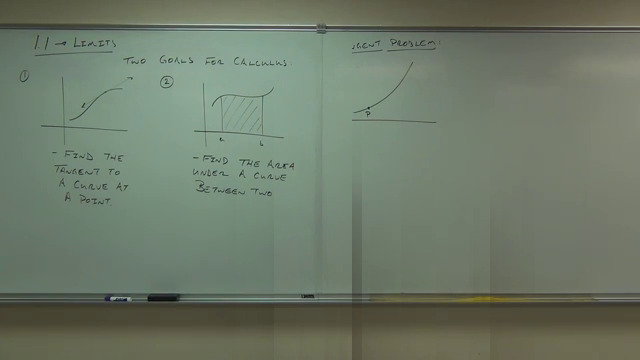 1.1 → LIMITS
TWO GOALS FOR CALCULUS:
①
- FIND THE
TANGENT TO
A CURVE AT
A POINT.
②
a b
- FIND THE AREA
UNDER A CURVE
BETWEEN TWO
PROBLEM:
P